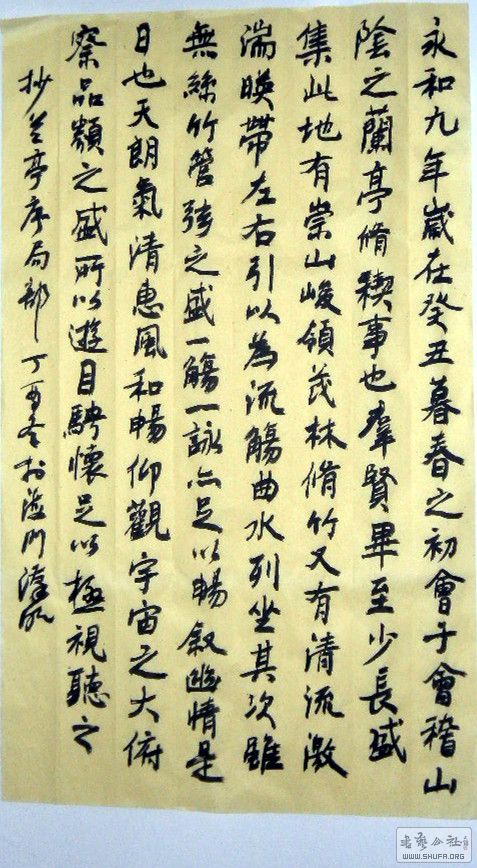 永和九年歲在癸丑暮春之初會于會稽山
陰之蘭亭脩稧事也羣賢畢至少長盛
集此地有崇山峻領茂林脩竹又有清流激
湍暎帶左右引以為流觴曲水列坐其次雖
無絲竹管弦之盛一觴一詠亦足以暢叙幽情是
日也天朗氣清惠風和暢仰觀宇宙之大俯
察品類之盛所以遊目騁懷足以極視聽之
抄兰亭序局部丁酉冬於门
書藝公社
WWW.SHUFA.ORG